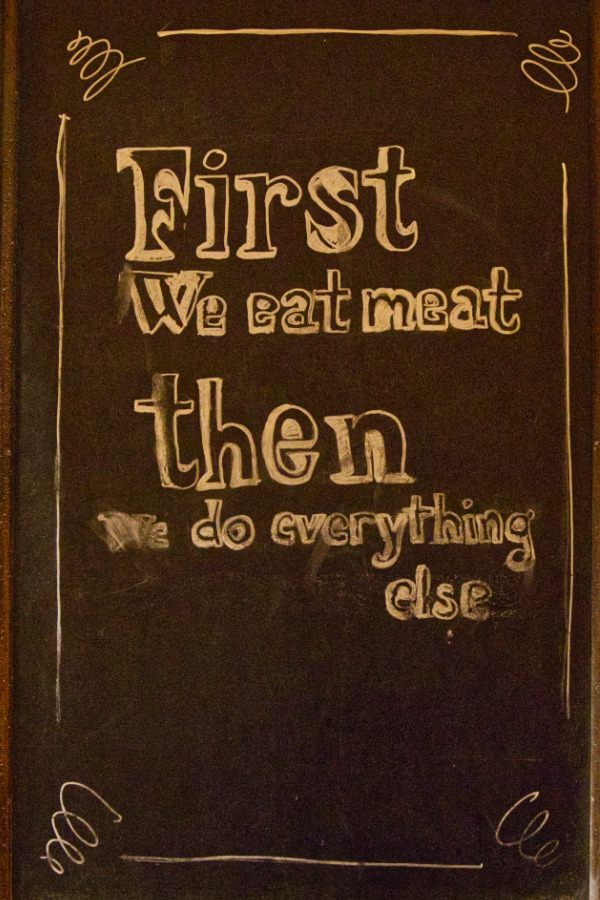 First
We eat meat
then
We do everything
else